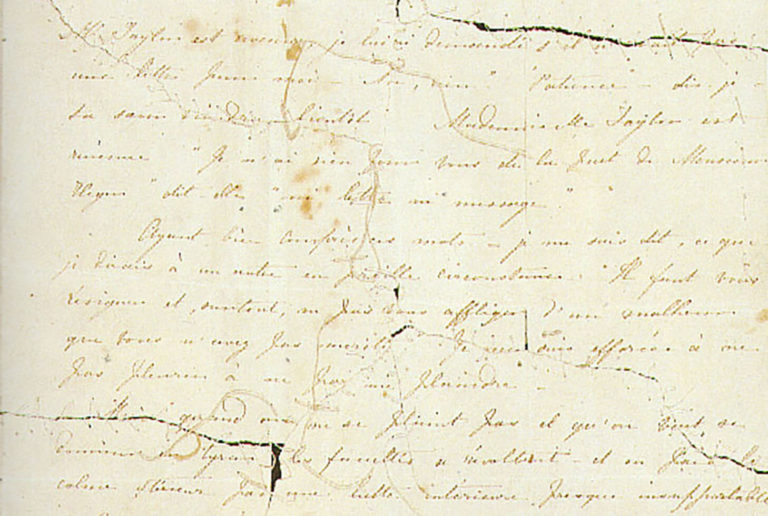 Mr Taylor est revenu, je lui ai demandé s'il n'avait pas
une lettre pour moi – Non, rien." "Patience" – dis-je –
"sa sœur viendra bientôt" Mademoiselle Taylor est
revenue "Je n'ai rien pour vous de la part de Monsieur
Heger" dit-elle "ni lettre ni message."
Ayant bien compris ces mots – je me suis dit, ce que
je dirais à un autre en pareille circonstance. "Il faut vous
résigner et, surtout, ne pas vous affliger d'un malheur
que vous n'avez pas mérité" Je me suis efforcée à ne
pas pleurer à ne pas me plaindre –
Mais quand on ne se plaint pas et qu'on veut se
dominer en tyran – les facultés se révoltent – et on paie le
calme extérieur par une lutte intérieure presque insupportable